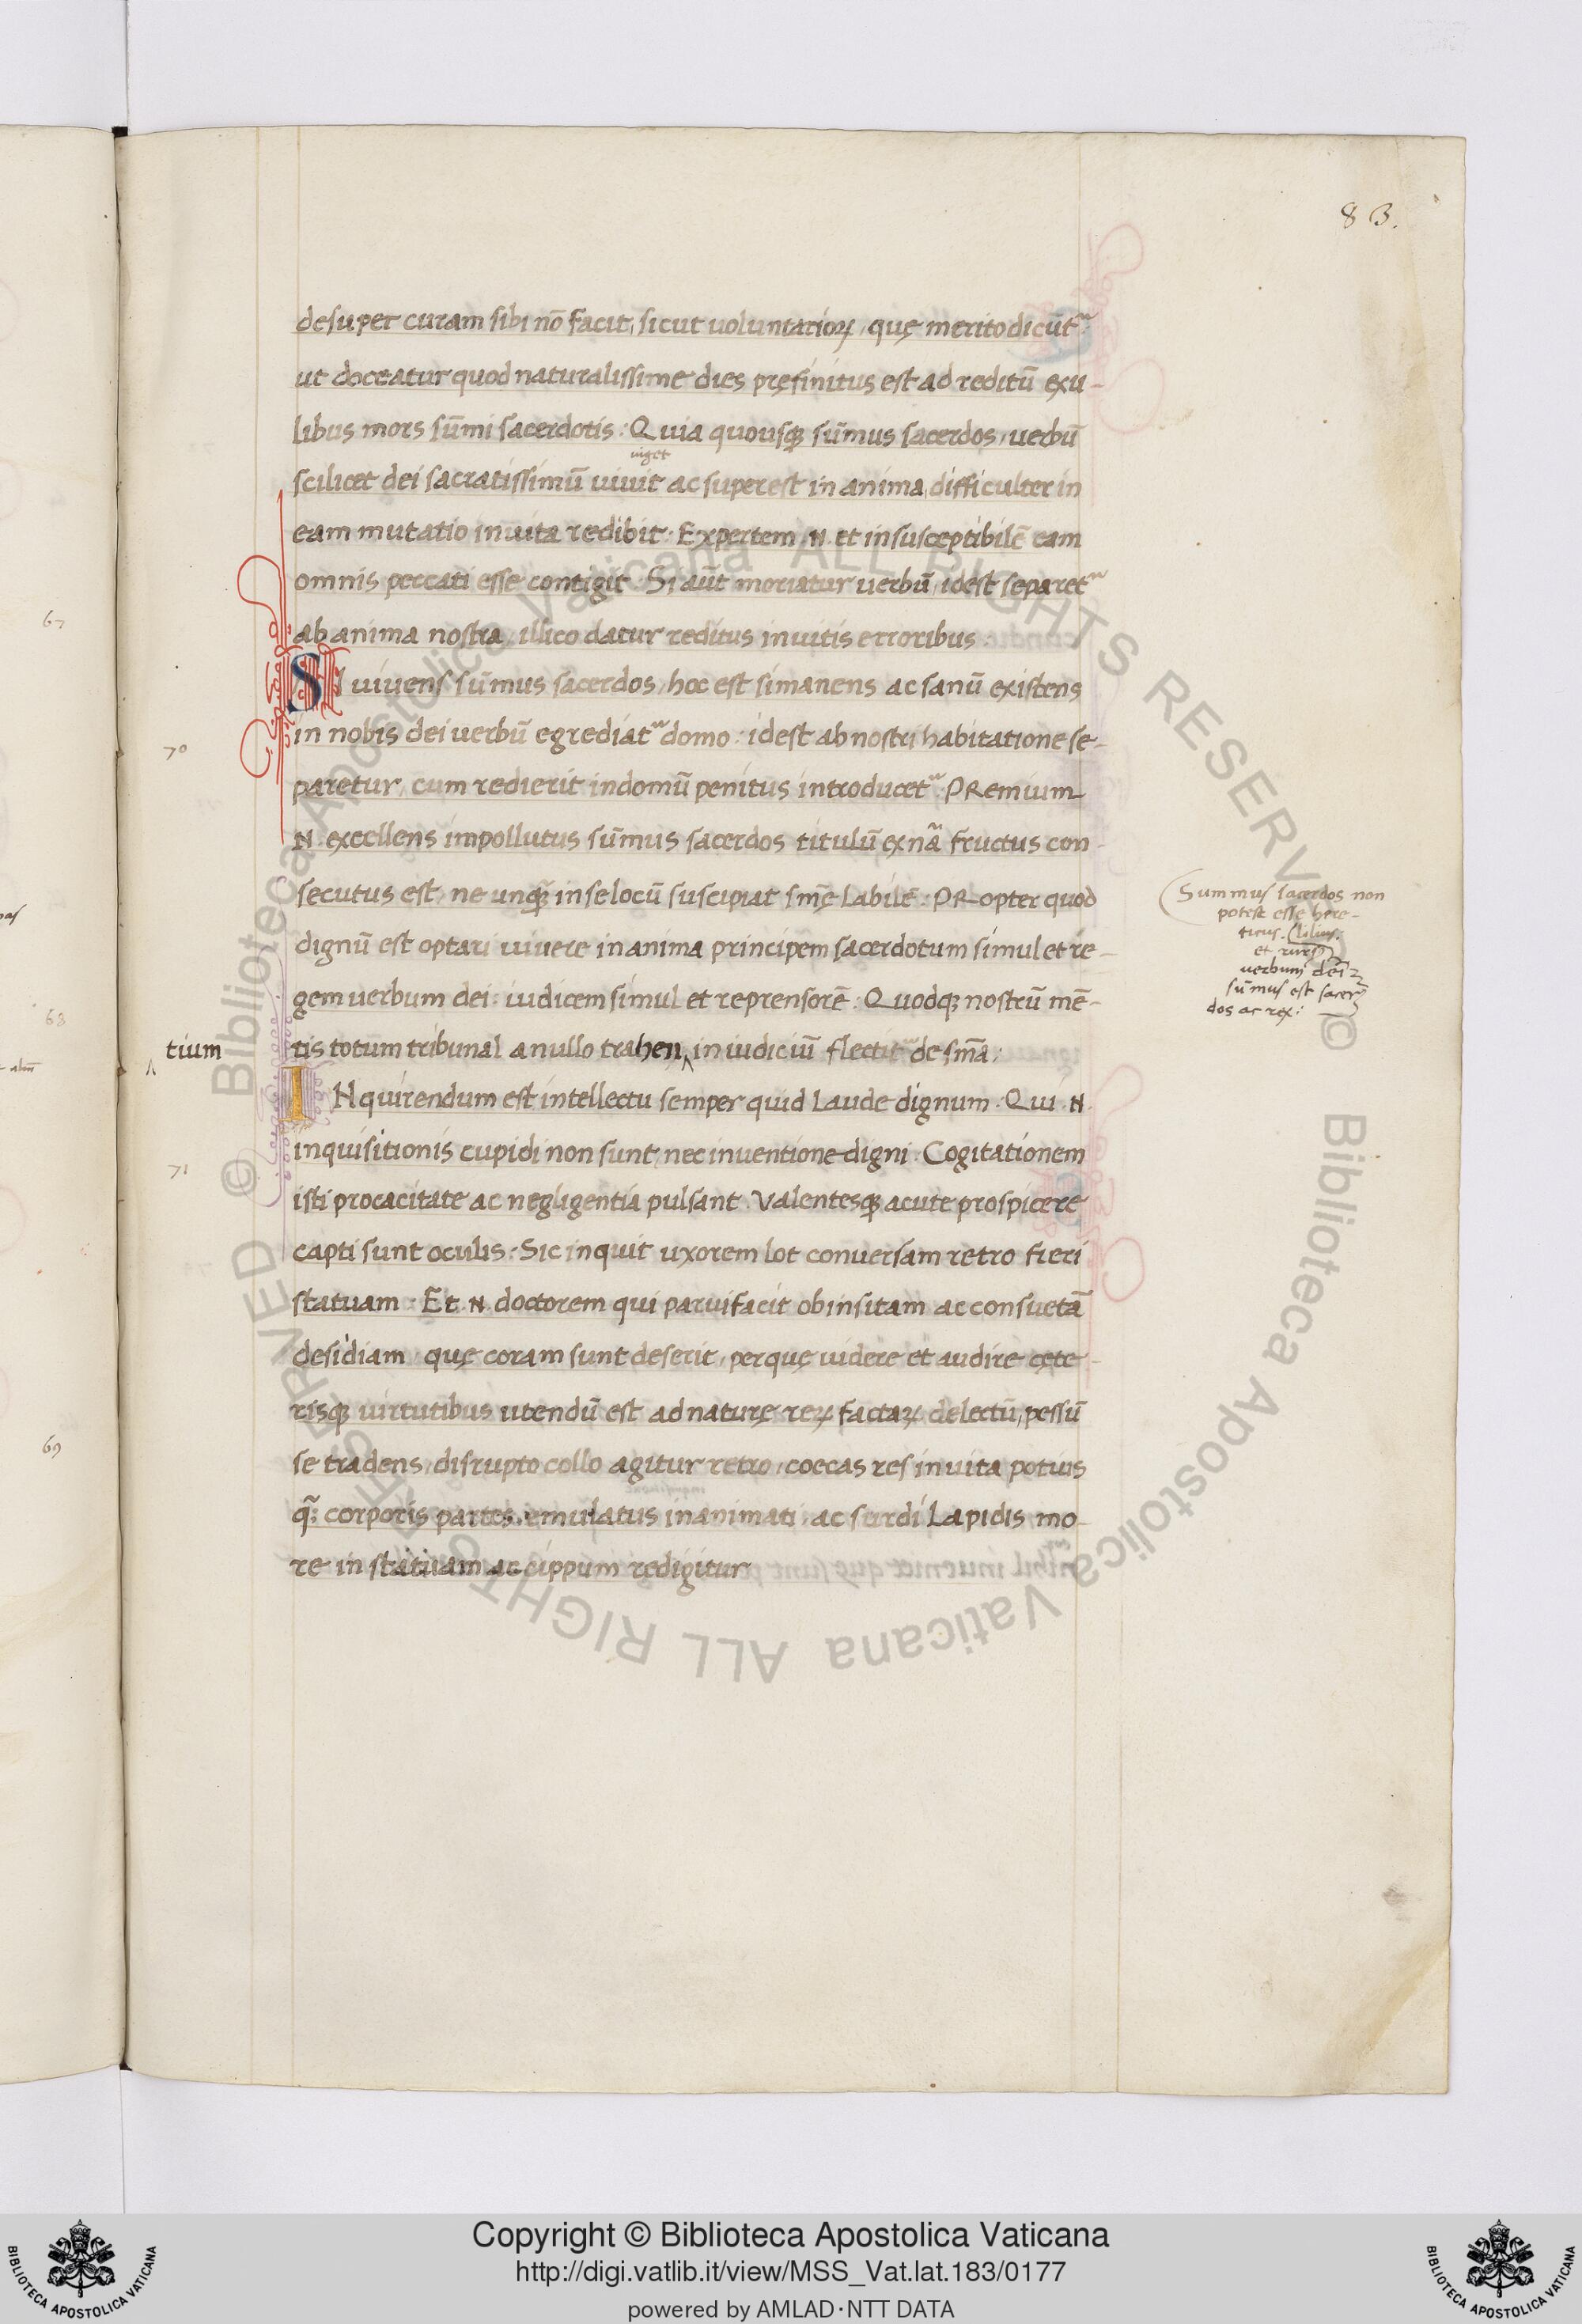 83.
desuper curam sibi nō facit, sicut uoluntatioꝝ, quę merito dicūt᷑
ut doceatur quod naturalissime dies pręfinitus est ad reditū exu-
libus mors sūmi sacerdotis: Quia quousqꝫ sūmus sacerdos, uerbū
uiget
scilicet dei sacratissimū uiuit ac superest in anima, difficulter in
eam mutatio inuita redibit. Expertem .N. et insusceptibilē eam
omnis peccati esse contigit. Si aūt moriatur uerbū, idest separet᷑
ab anima nostra, illico datur reditus inuitis erroribus.
67
SI uiuens sūmus sacerdos, hoc est si manens ac sanū existens
in nobis dei uerbū egrediat᷑ domo: idest ab nostri habitatione se-
70
paretur, cum redierit in domū penitus introducet᷑. PRemium
.N. excellens impollutus sūmus sacerdos titulū ex nā fructus con-
secutus est, ne unqꝫ̃ in se locū suscipiat smę labilē: PRopter quod
dignū est optari uiuere in anima principem sacerdotum simul et re-
gem uerbum dei: iudicem simul et reprensorē. Quodqꝫ nostrū mē-
tis totum tribunal a nullo trahen‸ in iudiciū flectit de smā;
tium
68
INquirendum est intellectu semper quid laude dignum. Qui .N.
inquisitionis cupidi non sunt, nec inuentione digni. Cogitationem
71
isti procacitate ac negligentia pulsant. Valentesqꝫ acute prospicere
capti sunt oculis. Sic inquit uxorem lot conuersam retro fieri
statuam. Et .N. doctorem qui paruifacit ob insitam ac consuetā
desidiam, quę coram sunt deserit, per quę uidere et audire cęte-
risqꝫ uirtutibus utendū est ad naturę reꝝ factaꝝ delectū, pessū
69
se tradens, disrupto collo agitur retro, coecas res in uita potius
q̃; corporis partes emulatus inanimati, ac surdi lapidis mo-
re in statuam ac cippum redigitur
Summus sacerdos non
potest esse here-
ticus.
et rurs
uerbum dei
sūmus est sacer
dos ac rex:
© Biblioteca Apostolica Vaticana ALL RIGHTS RESERVED
© Biblioteca Apostolica Vaticana ALL RIGHTS RESERVED
Copyright © Biblioteca Apostolica Vaticana
http://digi.vatlib.it/view/MSS_Vat.lat.183/0177
powered by AMLAD·NTT DATA
BIBLIOTECA APOSTOLICA VATICANA
BIBLIOTECA APOSTOLICA VATICANA